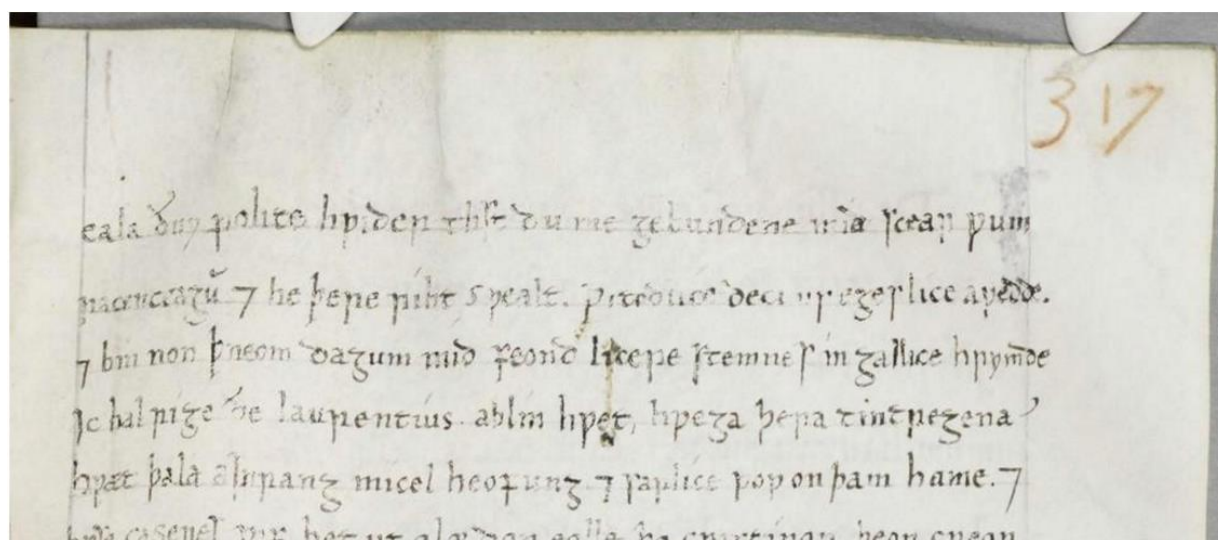 317
eala ðu ypolite hƿider tihst ðu me gebundene mid scearpum
racenteagū ⁊ he þere niht sƿealt. ƿitodlice decius egeslice aƿedde.
⁊ bin̄on þreom dagum mid feondlicere stemne singallice hrymde
Ic halsige ðe laurentius. ablin hƿet hƿega þera tintregena
hƿæt þa la asprang micel heofung ⁊ sarlice ƿop on þam hame. ⁊